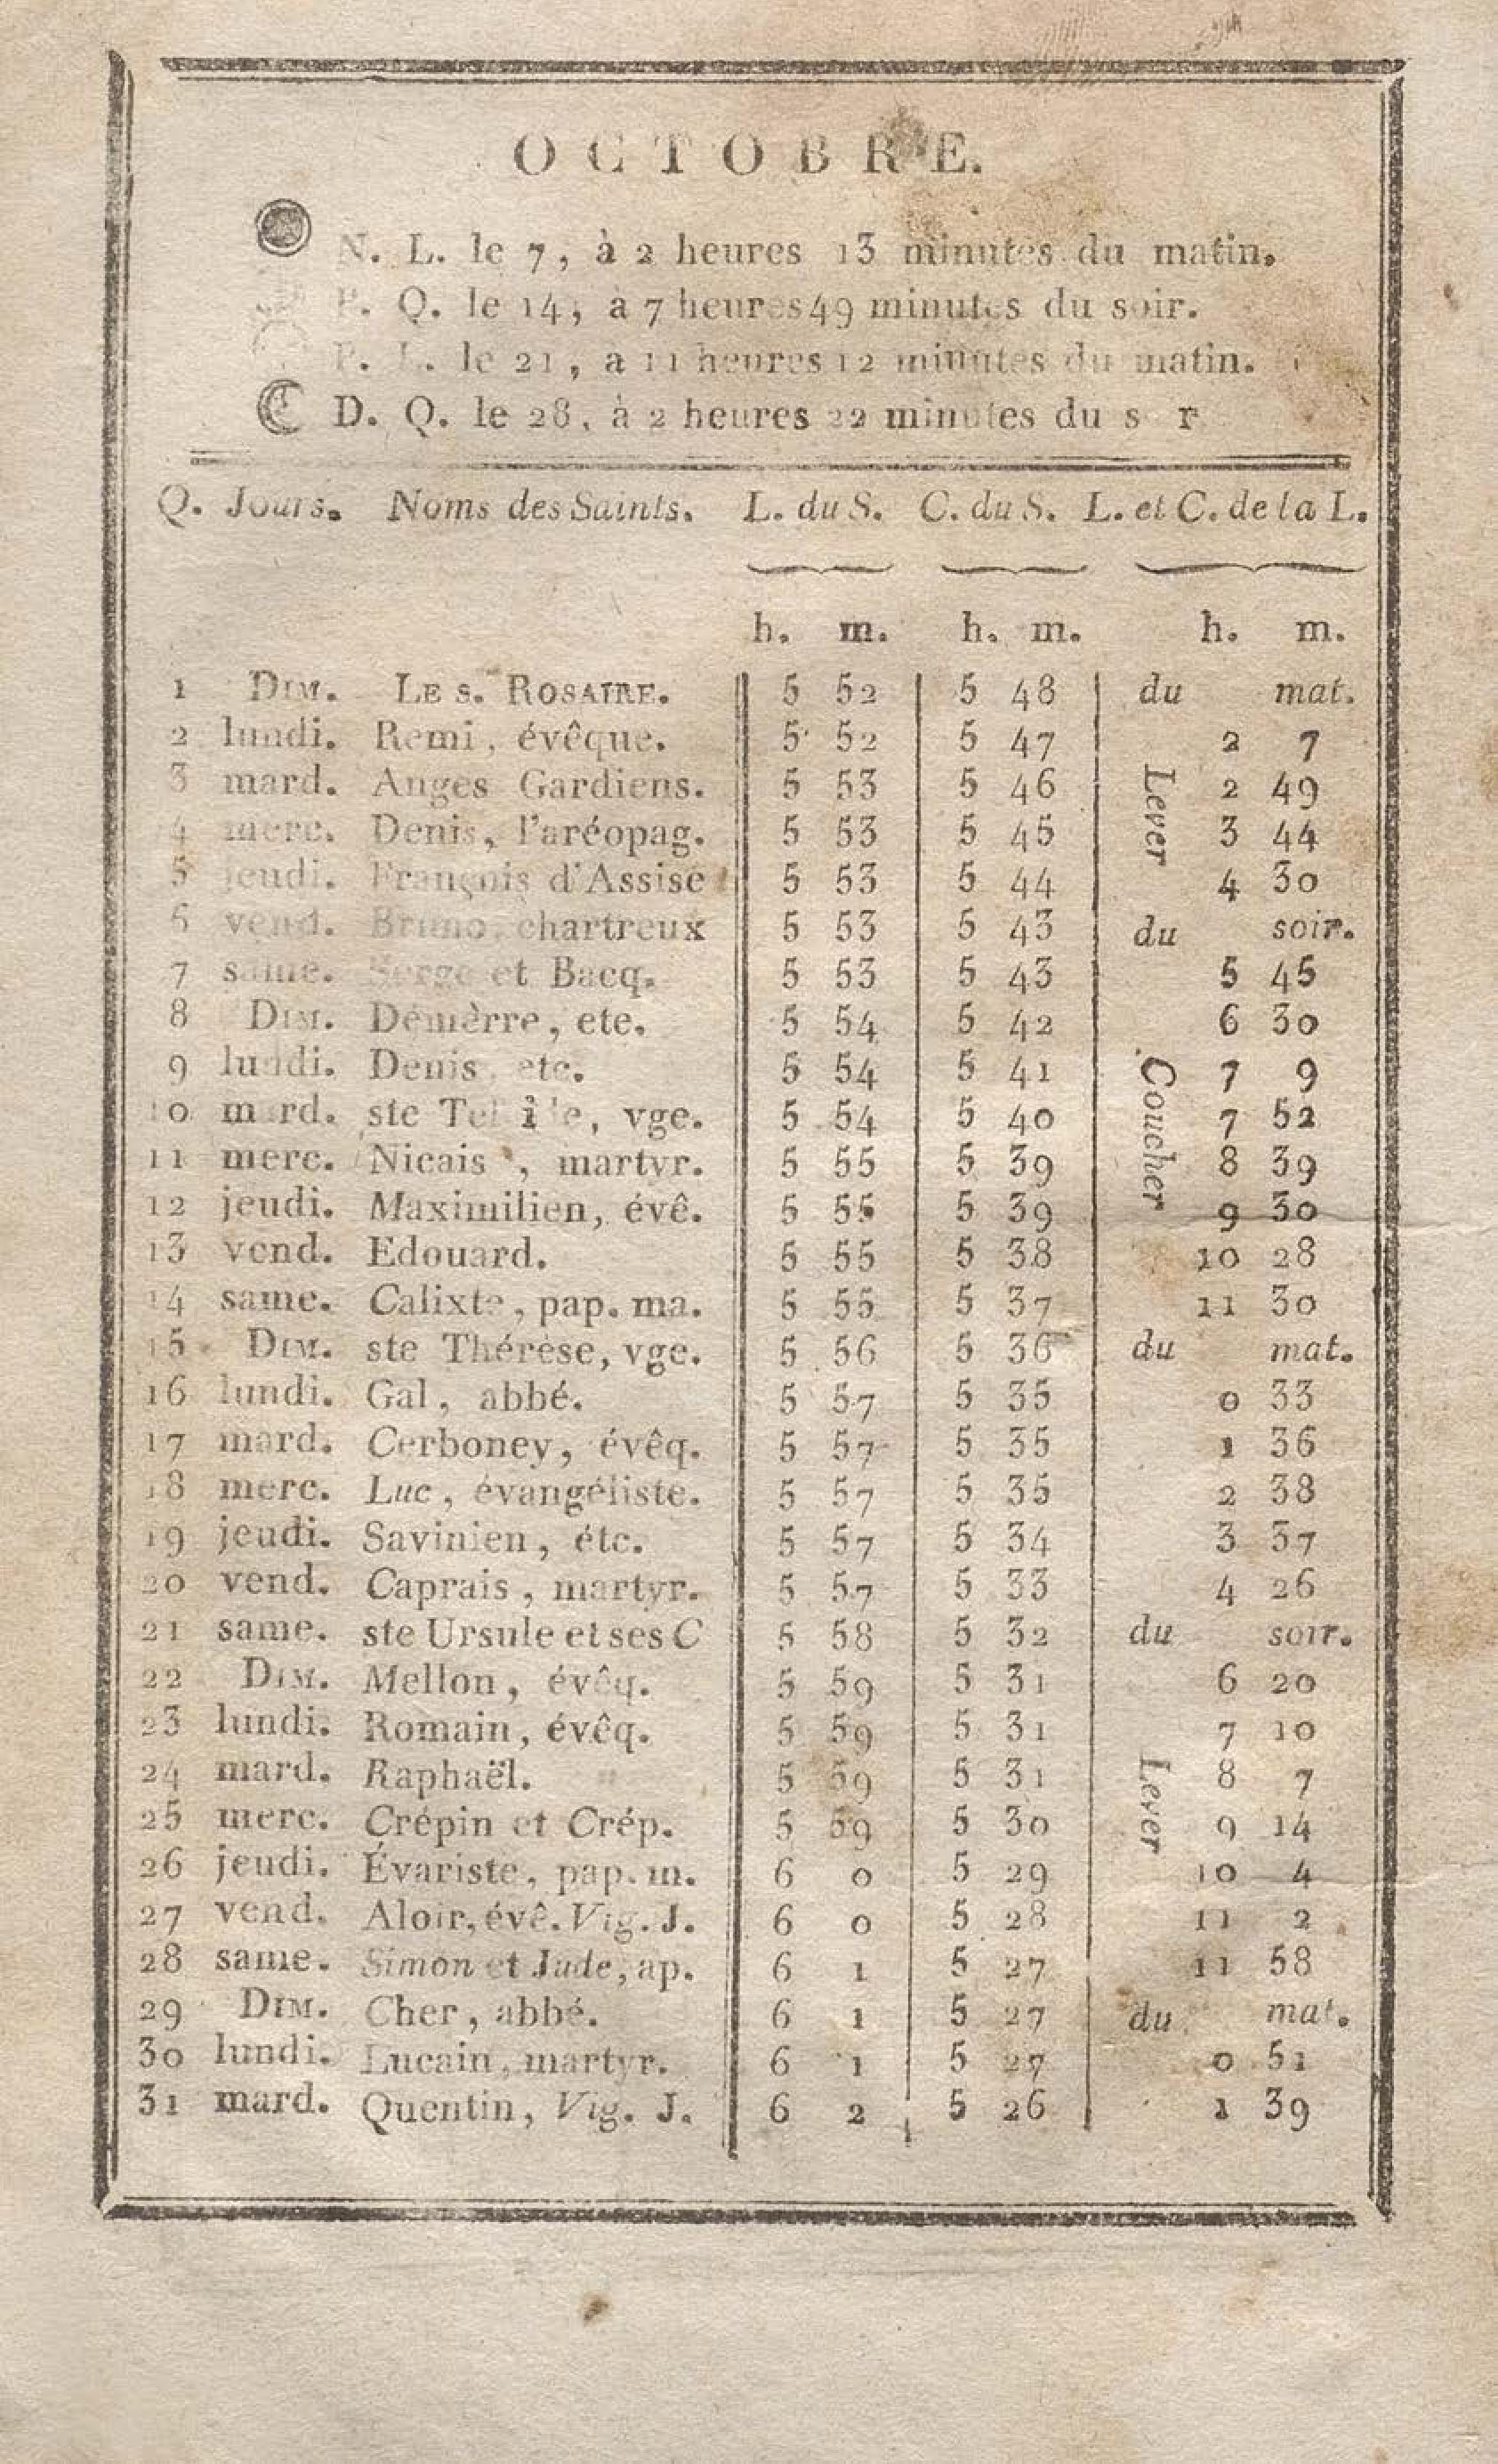 OCTOBRE.
N. L. le 7, à 2 heures 13 minutes du matin.
P. Q. le 14, à 7 heures 49 minutes du soir.
P. L. le 21, a 11 heures 12 minutes du matin.
D. Q. le 28, à 2 heures 22 minutes du s r
Q. Jours. Noms des Saints. L. du S. C. du S. L. et C. de la L.
h. m. h. m. h. m.
1 DIM. LE S. ROSAIRE. 5 52 5 48 du mat.
2 lundi. Remi, évêque. 5 52 5 47 2 7
3 mard. Anges Gardiens. 5 53 5 46 Lever 2 49
4 merc. Denis, l'aréopag. 5 53 5 45 3 44
5 jeudi. François d'Assise 5 53 5 44 4 30
6 vend. Bruno, chartreux 5 53 5 43 du soir.
7 same. Serge et Bacq. 5 53 5 43 5 45
8 DIM. Démèrre, ete. 5 54 5 42 6 30
9 lundi. Denis, etc. 5 54 5 41 Coucher 7 9
10 mard. ste vge. 5 54 5 40 7 52
11 merc. Nicais , martyr. 5 55 5 39 8 39
12 jeudi. Maximilien, évê. 5 55 5 39 9 30
13 vend. Edouard. 5 55 5 38 10 28
14 same. Calixte, pap. ma. 5 55 5 37 11 30
15 DIM. ste Thérèse, vge. 5 56 5 36 du mat.
16 lundi. Gal, abbé. 5 57 5 35 0 33
17 mard. Cerboney, évêq. 5 57 5 35 1 36
18 merc. Luc, évangéliste. 5 57 5 35 2 38
19 jeudi. Savinien, étc. 5 57 5 34 3 37
20 vend. Caprais, martyr. 5 57 5 33 4 26
21 same. ste Ursule et ses C 5 58 5 32 du soir.
22 DIM. Mellon, évêq. 5 59 5 31 6 20
23 lundi. Romain, évêq. 5 59 5 31 7 10
24 mard. Raphaël. 5 59 5 31 Lever 8 7
25 merc. Crépin et Crép. 5 59 5 30 9 14
26 jeudi. Évariste, pap. m. 6 0 5 29 10 4
27 vend. Aloir, évê. Vig. J. 6 0 5 28 11 2
28 same. Simon et Jude, ap. 6 1 5 27 11 58
29 DIM. Cher, abbé. 6 1 5 27 du mat.
30 lundi. Lucain, martyr. 6 1 5 27 0 51
31 mard. Quentin, Vig. J. 6 2 5 26 1 39